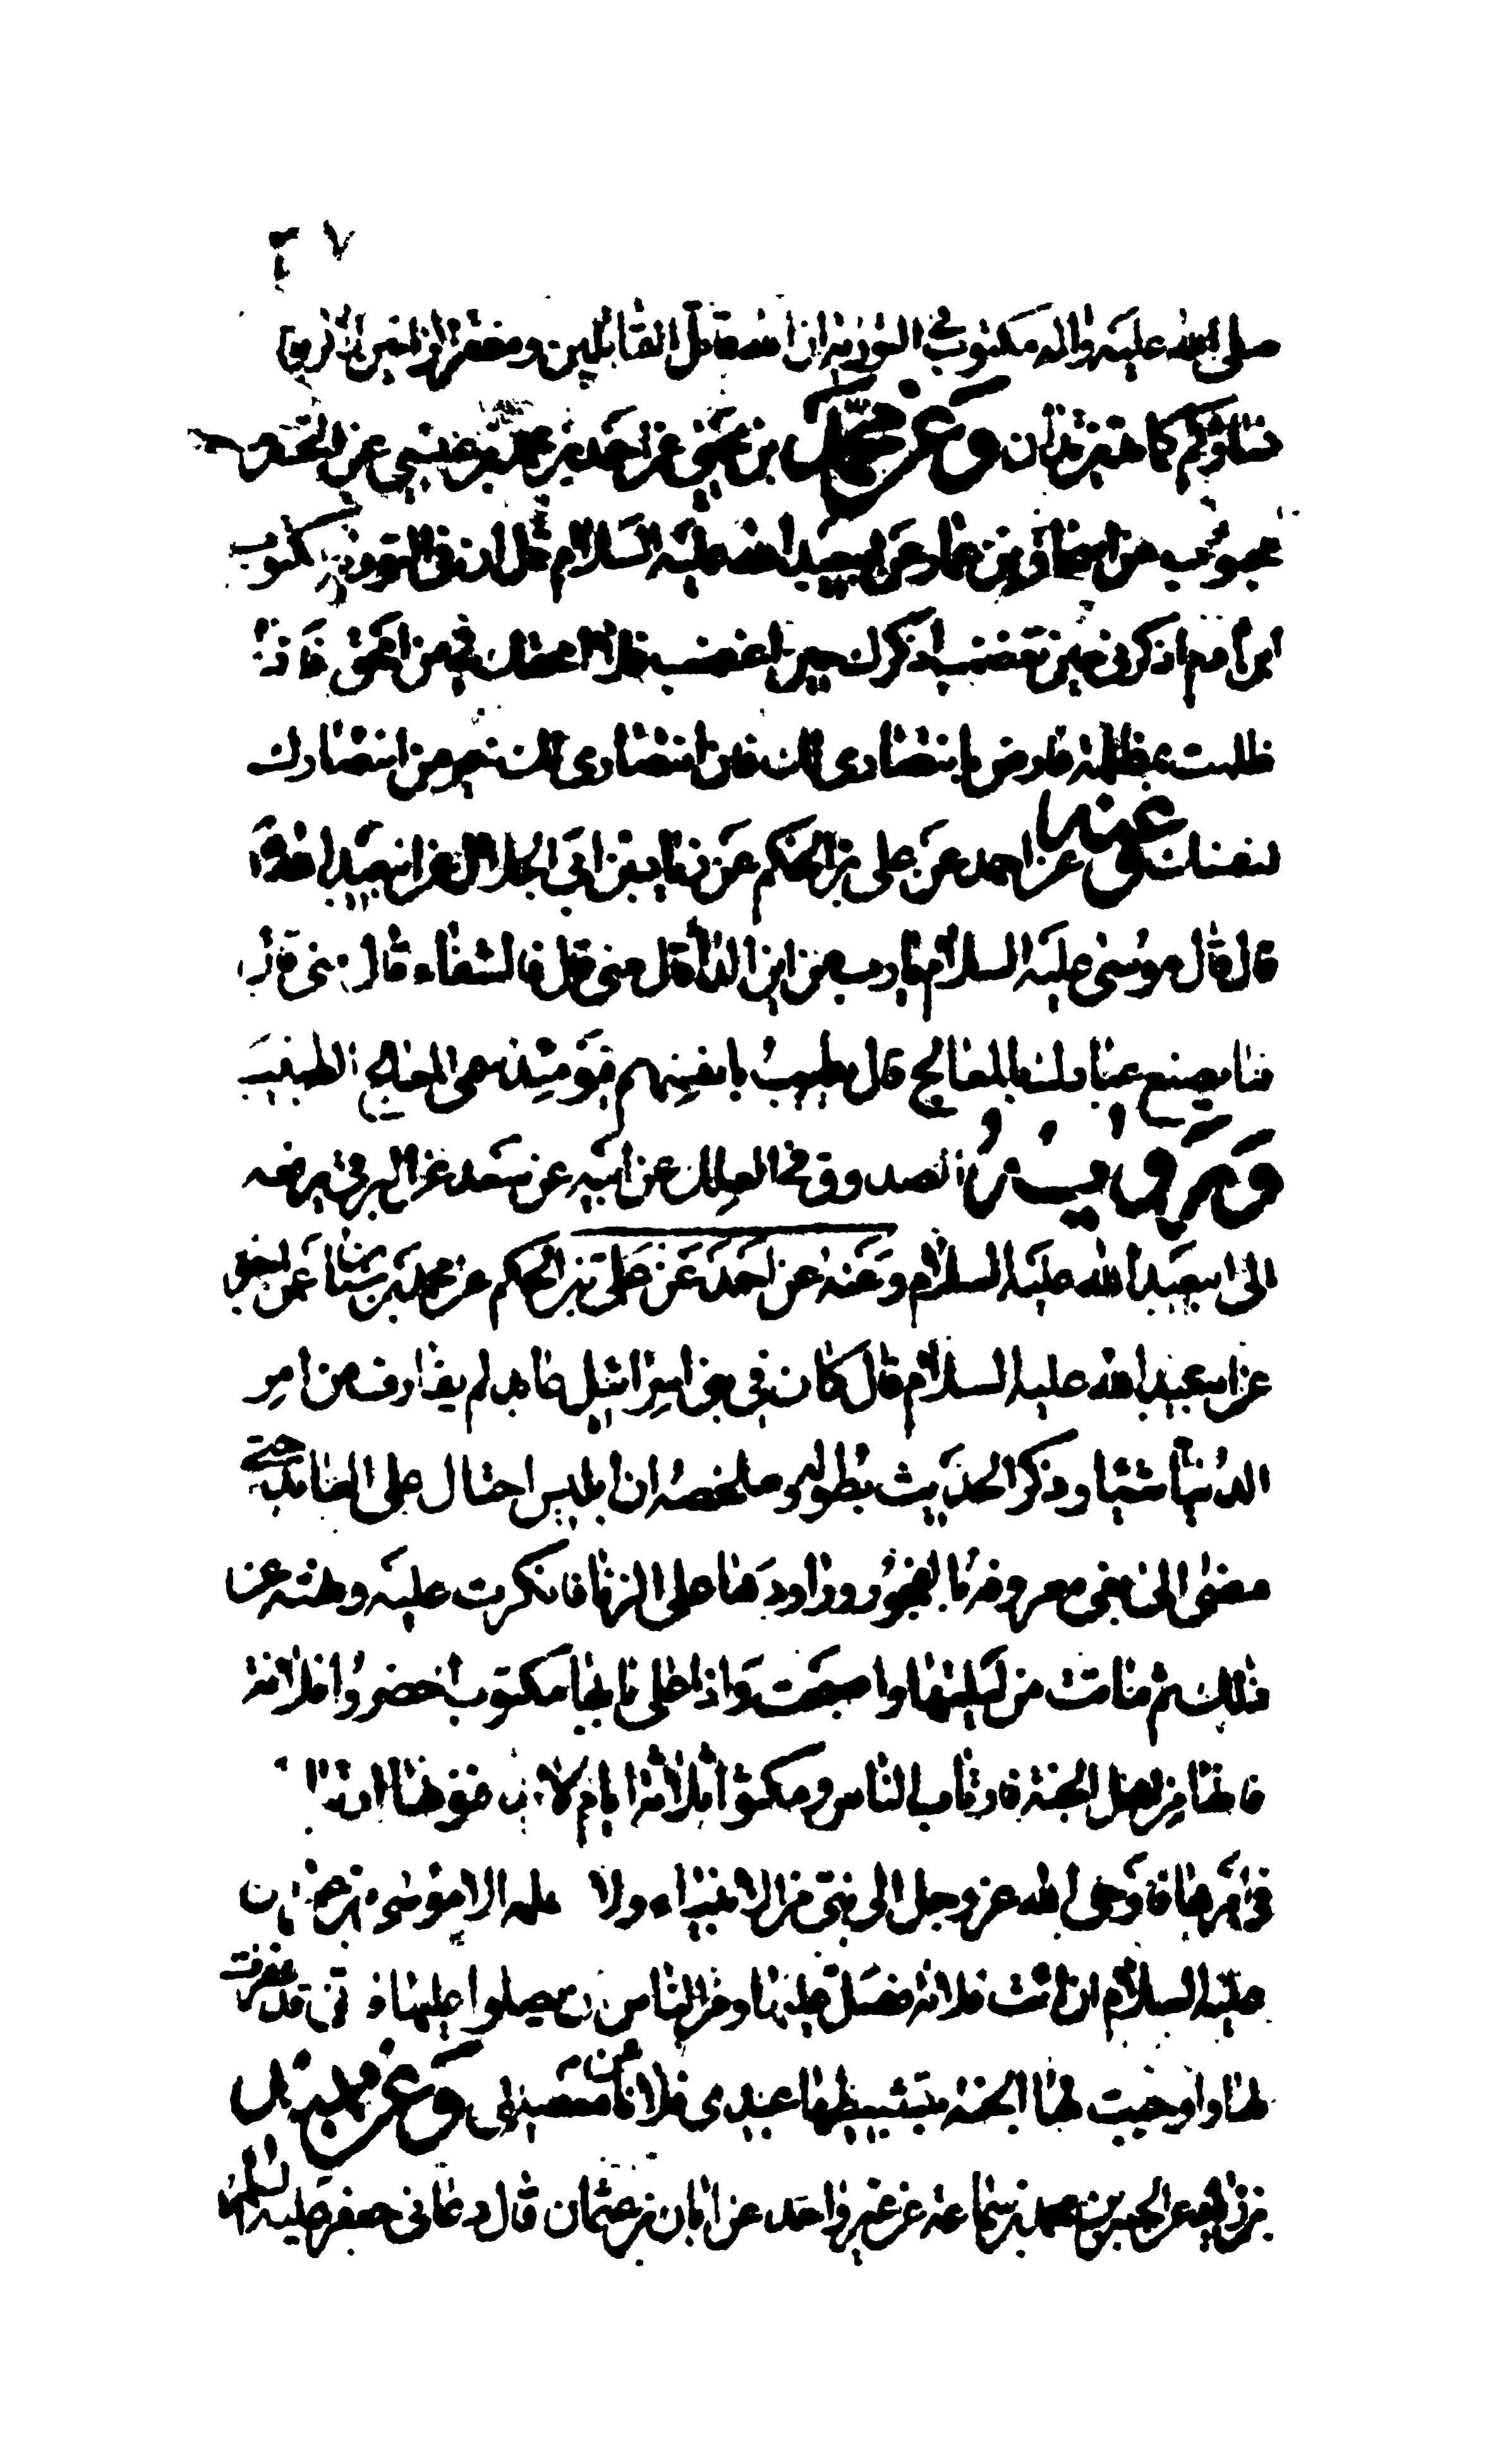 ٢٧
صلى الله عليه واله مكتوب في التورية ان اشـ قاتل القاتلين ومفقر الزانين
وعن محمد بن يحيى عن احمد بن محمد بن عيسى عن الحسن بن
محبوب عن اسحاق بن عمار عن ابي عبد الله عليه السلام قال ان في التورية مكتوب
ابن ادم اذكرني حين تغضب اذكرك حين اغضب فلا امحقك فيمن امحق فاذا
ظلمت بمظلمة فارض بانتصاري لك فان انتصاري لك خير من انتصارك
لنفسك وعنه عن احمد عن علي بن الحكم عن زياد بن ابي الحلال عن ابي عبد الله ع
قال قال موسى عليه السلام يا رب من اين الداء قال مني قال فالشفاء قال مني قال
فما يصنع عبادك بالمعالج قال يطيب بانفسهم فيومئذ سمي المعالج الطبيب
ورواه الصدوق في العلل عن ابيه عن سعد عن البرقي يرفعه
الى ابي عبد الله عليه السلام وعنه عن احمد عن علي بن الحكم عن محمد بن سنان عمن اخبره
عن ابي عبد الله عليه السلام قال كان في بني اسرائيل عابد لم يقارف من امر
الدنيا شيئا وذكر الحديث بطوله وملخصه ان ابليس احتال على العابد حتى
مضى الى بغي معروفة بالفجور وراودها على الزنا فانكرت عليه ومنعته عن
ذلك ثم ماتت من ليلتها واصبحت واذا على بابها مكتوب احضروا فلانة
فانها من اهل الجنة فارتاب الناس ومكثوا ثلاثة ايام لا يدفنوها ارتيابا
في امرها فاوحى الله عز وجل الى نبي من الانبياء ولا اعلمه الا موسى بن عمران
عليه السلام ان ائت فلانة فصل عليها ومر الناس ان يصلوا عليها فاني قد غفرت
لها واوجبت لها الجنة بتثبيطها عبدي فلانا عن معصيتي وعن محمد بن
عن الحسن بن محمد بن سماعة عن غير واحد عن ابان بن عثمان قال دعاني جعفر عليه السلام